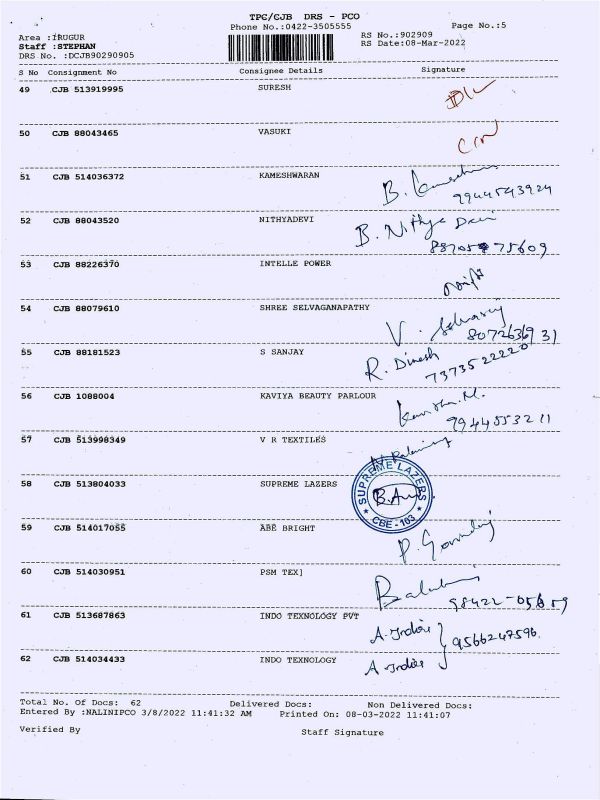 TPC/CJB DRS - PCO
Phone No.:0422-3505555
Page No.:5
Area :IRUGUR
RS No.:902909
Staff :STEPHAN
RS Date:08-Mar-2022
DRS No. :DCJB90290905
S No Consignment No Consignee Details Signature
49 CJB 513919995 SURESH
50 CJB 88043465 VASUKI
51 CJB 514036372 KAMESHWARAN
B.
9944543924
52 CJB 88043520 NITHYADEVI
B. Nithya Devi
88705 75609
53 CJB 88226370 INTELLE POWER
54 CJB 88079610 SHREE SELVAGANAPATHY
V. Selvaraj
8072636931
55 CJB 88181523 S SANJAY
R. Dinesh
7373522220
56 CJB 1088004 KAVIYA BEAUTY PARLOUR
9944553211
57 CJB 513998349 V R TEXTILES
58 CJB 513804033 SUPREME LAZERS
SUPREME LAZERS
CBE - 103
59 CJB 514017055 ABE BRIGHT
P. Govindaj
60 CJB 514030951 PSM TEX]
61 CJB 513687863 INDO TEXNOLOGY PVT
A. Indira
9566247596
62 CJB 514034433 INDO TEXNOLOGY
A Indira
Total No. Of Docs: 62 Delivered Docs: Non Delivered Docs:
Entered By :NALINIPCO 3/8/2022 11:41:32 AM Printed On: 08-03-2022 11:41:07
Verified By Staff Signature